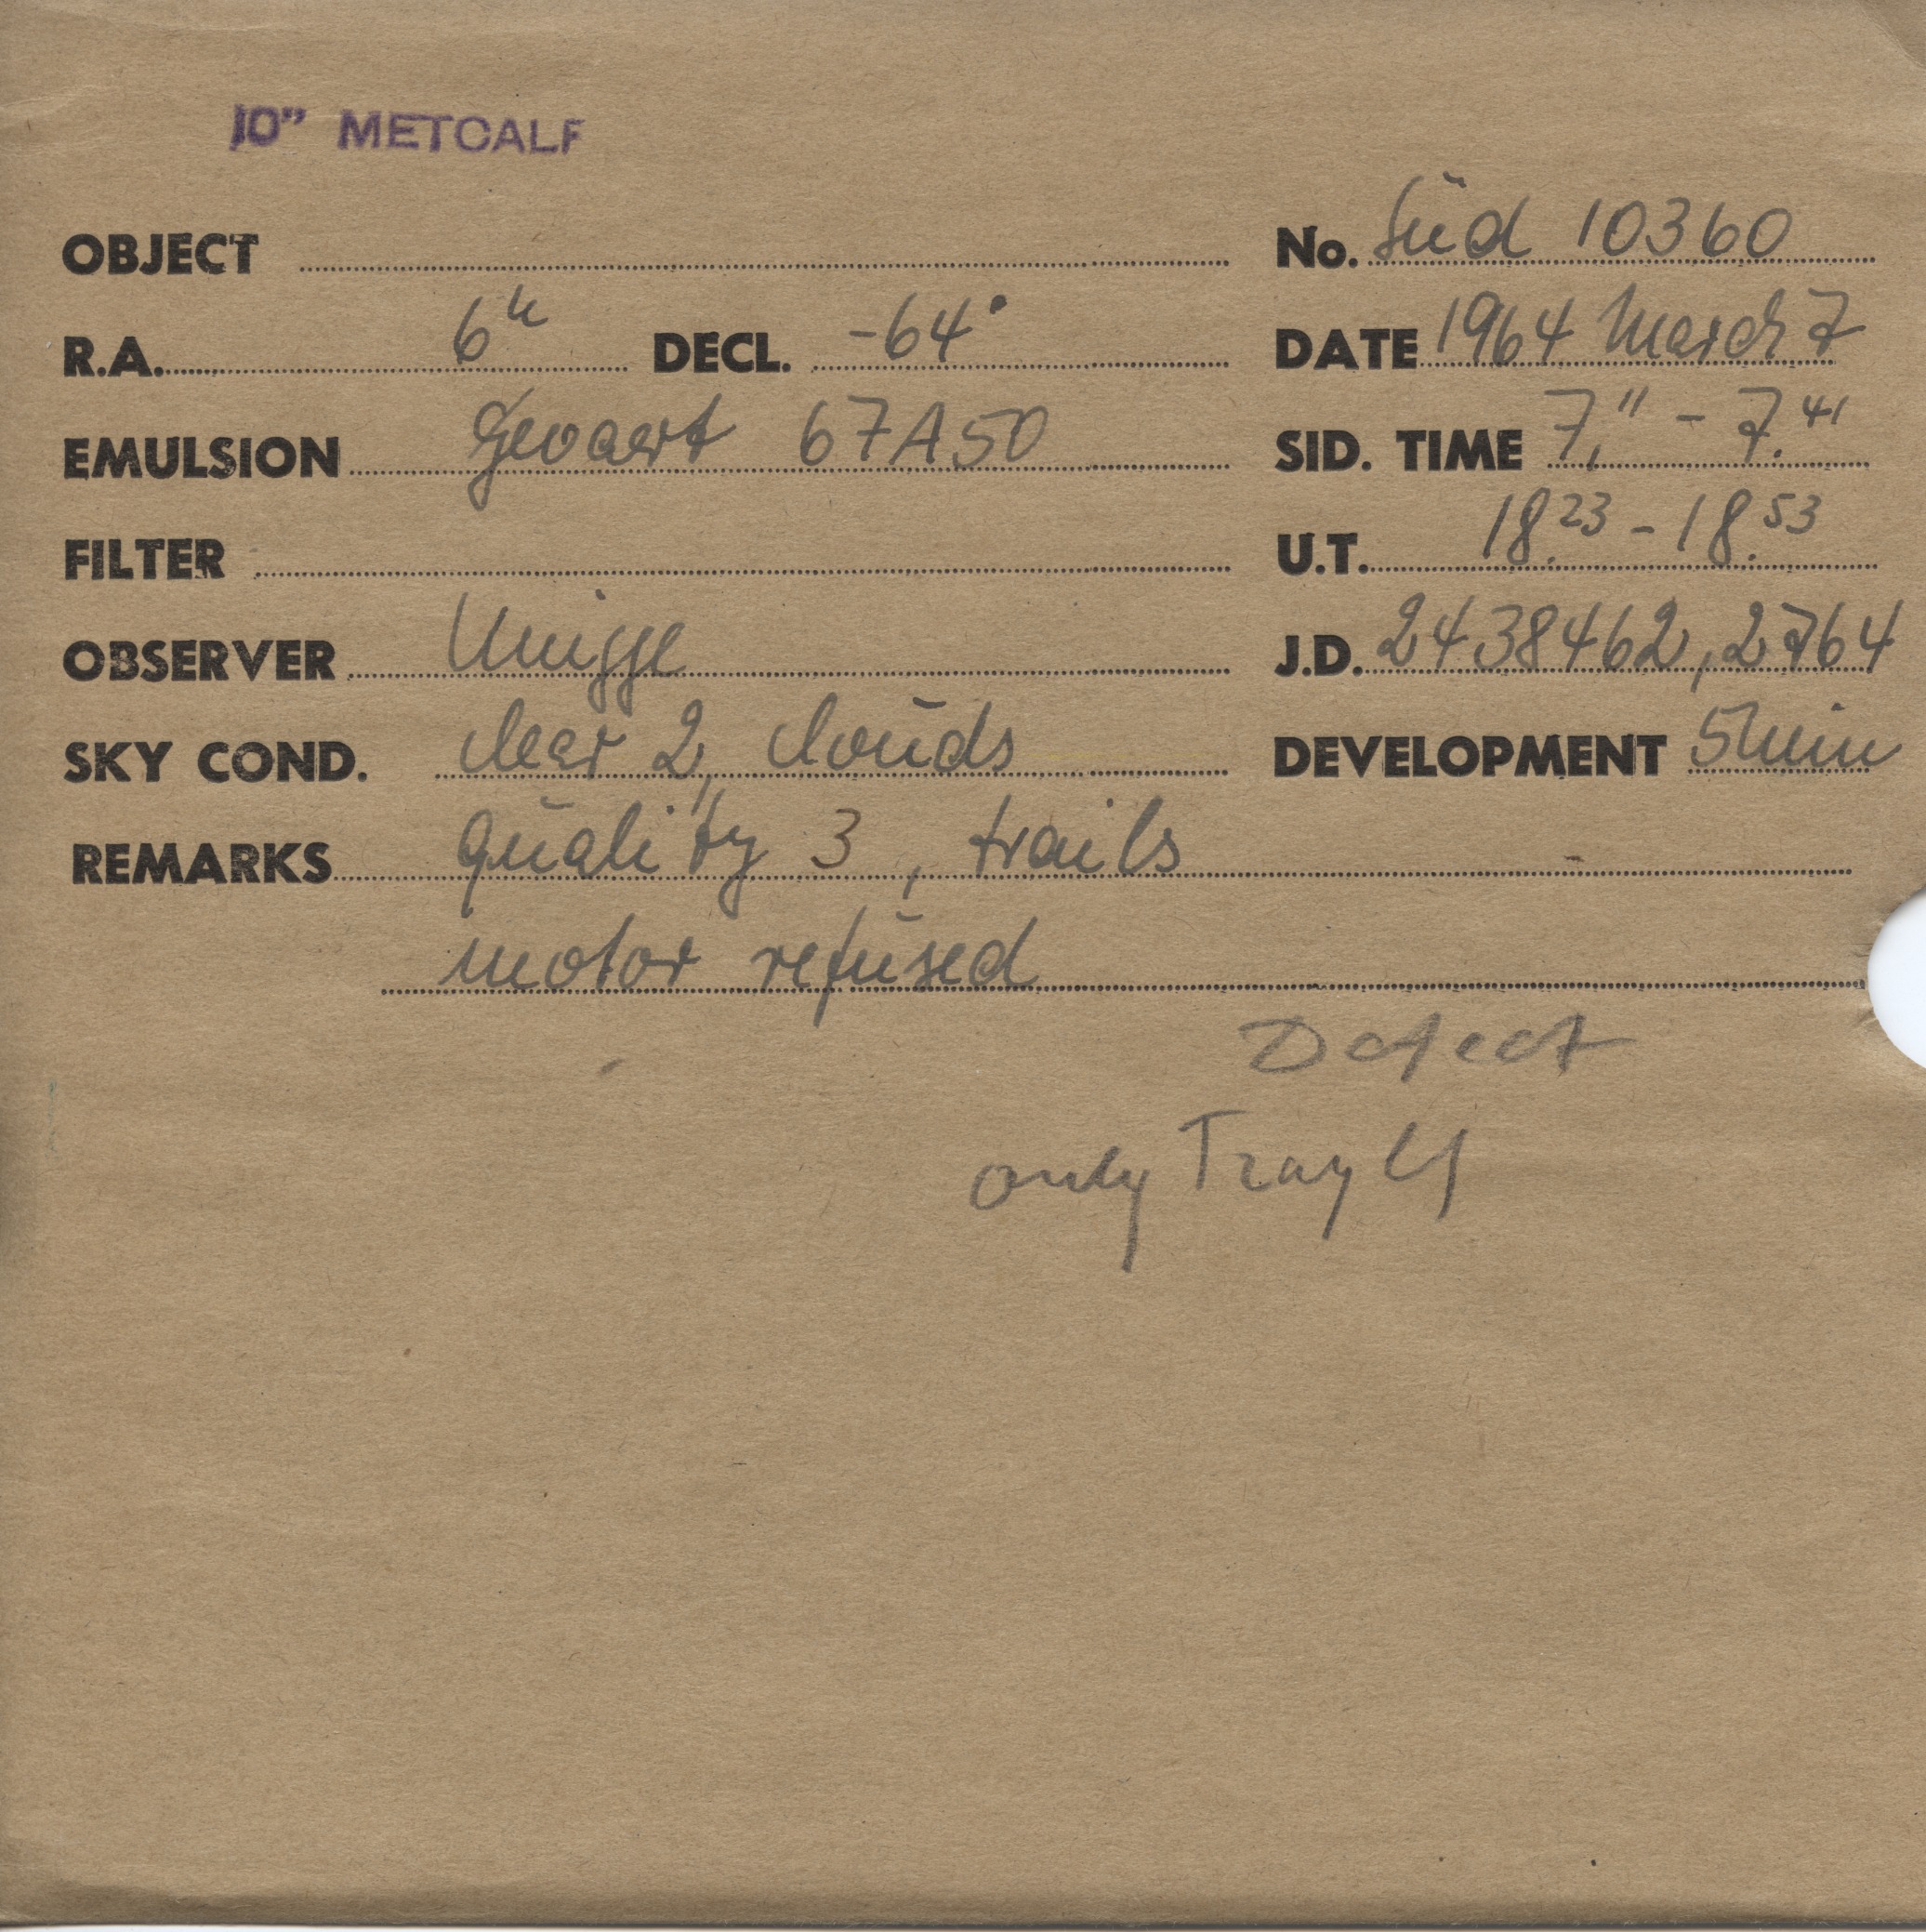 10" METCALF
OBJECT No. Süd 10360
R.A. 6h DECL. -64° DATE 1964 March 7
EMULSION Gevaert 67A50 SID. TIME 7.11 - 7.41
FILTER U.T. 18.23 - 18.53
OBSERVER J.D. 2438462,2764
SKY COND. clear 2, cloūds DEVELOPMENT 5min
REMARKS qūality 3, trails
motor refūsed
Defect
only